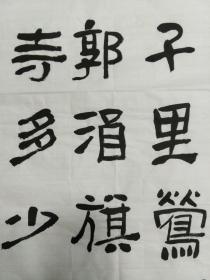 千里鶯
郭酒旗
寺多少